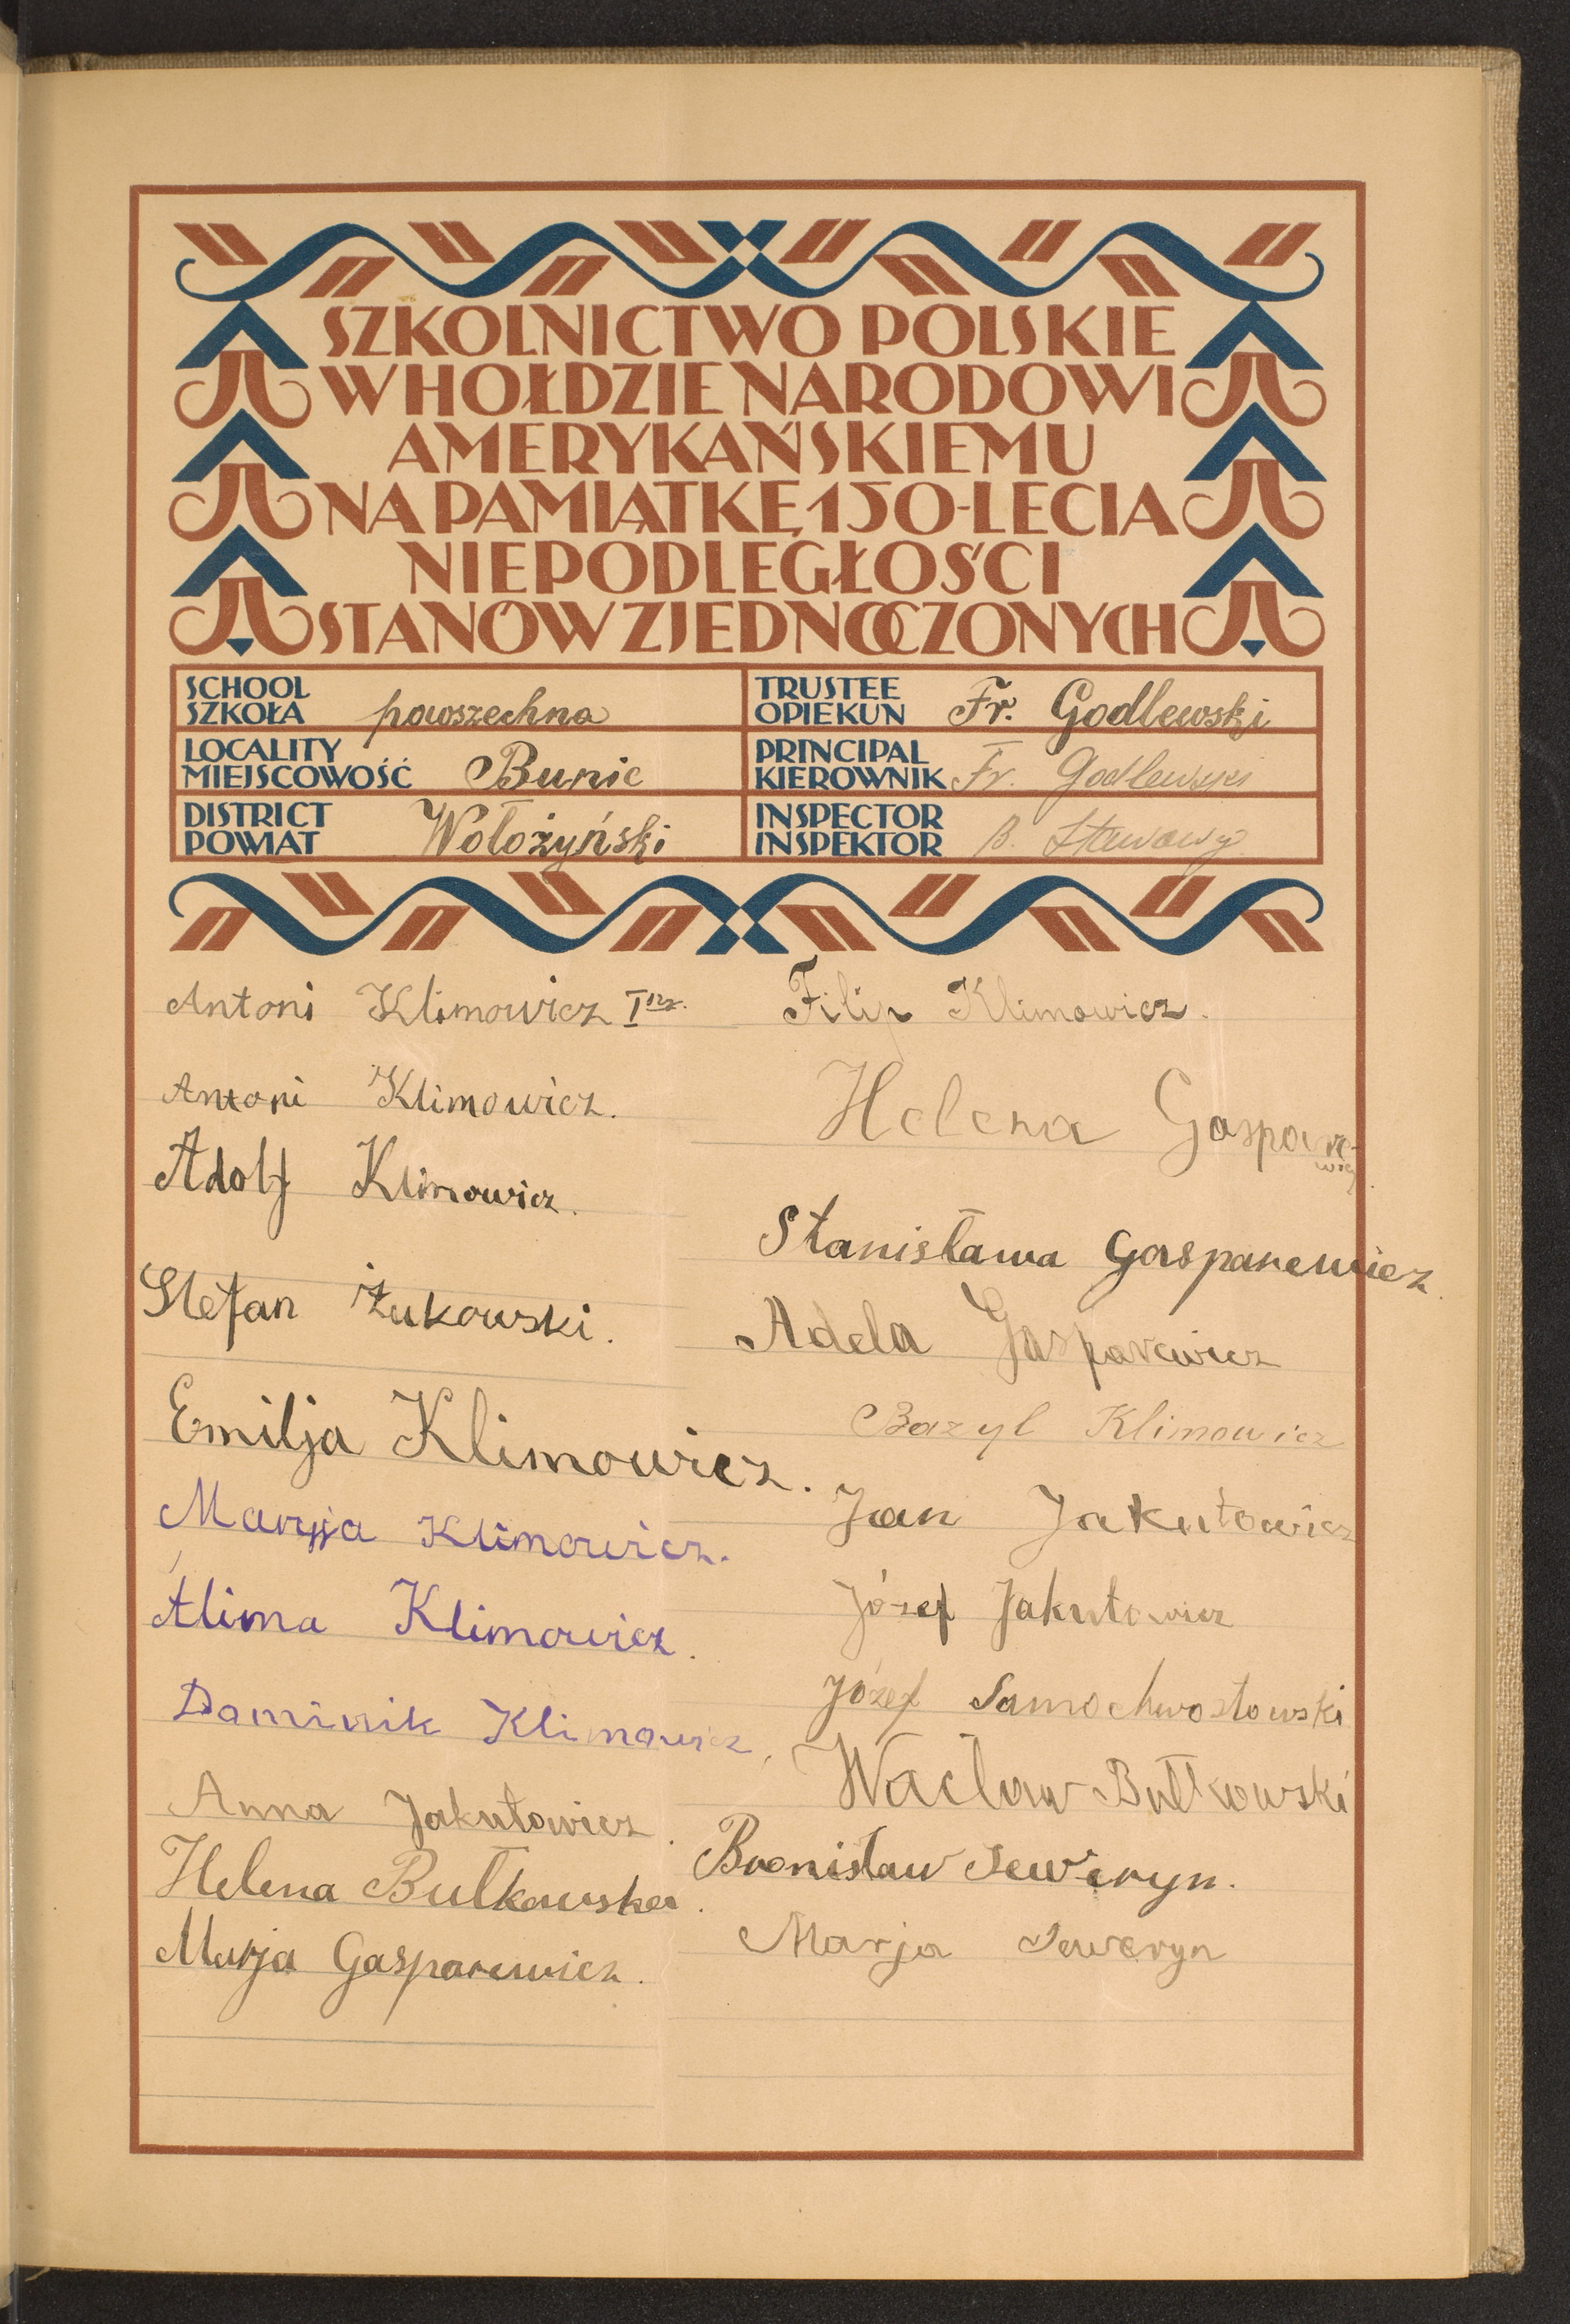 SZKOLNICTWO POLSKIE
W HOŁDZIE NARODOWI
AMERYKAŃSKIEMU
NA PAMIĄTKĘ 150-LECIA
NIEPODLEGŁOŚCI
STANÓW ZJEDNOCZONYCH
SCHOOL
SZKOŁA powszechna
TRUSTEE
OPIEKUN Fr. Godlewski
LOCALITY
MIEJSCOWOŚĆ Bunie
PRINCIPAL
KIEROWNIK Fr. Godlewski
DISTRICT
POWIAT Wołożyński
INSPECTOR
INSPEKTOR B. Stawowy
Antoni Klimowicz I
Antoni Klimowicz.
Adolf Klimowicz.
Stefan Żukowski.
Emilja Klimowicz.
Maryja Klimowicz.
Alima Klimowicz.
Daminik Klimowicz,
Anna Jakutowicz.
Helena Bułkowska.
Marja Gasparewicz.
Filip Klimowicz.
Helena Gaspare-
wicz.
Stanisława Gasparewicz.
Adela Gasparewicz
Bazyl Klimowicz
Jan Jakutowicz
Józef Jakutowicz
Józef Samochwostowski
Wacław Bułkowski
Bronisław Seweryn.
Marja Seweryn